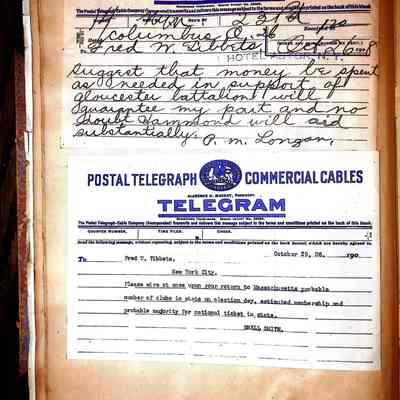 Columbus O. 26
Fred W. Tibbets, Oct 26 1908
HOTEL ASTOR, N.Y.
Suggest that money be spent
as needed in support of
Gloucester battalion I will
guarantee my part and no
doubt Hammond will aid
substantially. P. M. Longan,
POSTAL TELEGRAPH COMMERCIAL CABLES
CLARENCE H. MACKAY, PRESIDENT.
TELEGRAM
The Postal Telegraph-Cable Company (Incorporated) transmits and delivers this message subject to the terms and conditions printed on the back of this blank.
COUNTER NUMBER. TIME FILED. CHECK.
Send the following message, without repeating, subject to the terms and conditions printed on the back hereof, which are hereby agreed to.
October 25, 08. 190
To Fred W. Tibbets,
New York City.
Please wire at once upon your return to Massachusetts probable
number of clubs in state on election day, estimated membership and
probable majority for national ticket in state.
SMALL SMITH.